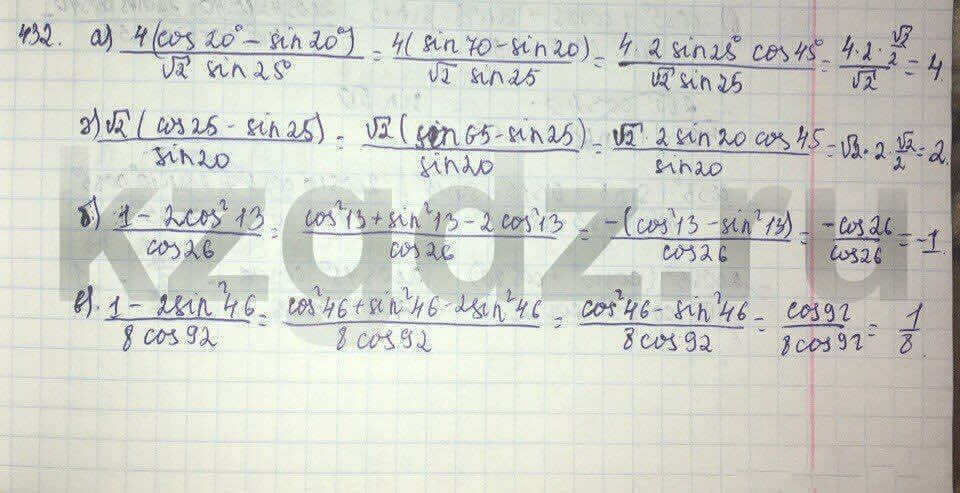 432. а) 4(cos 20° - sin 20°) / √2 sin 25° = 4(sin 70 - sin 20) / √2 sin 25 = 4·2 sin 25° cos 45° / √2 sin 25 = 4·2·√2/2 / √2 = 4.
г) √2 (cos 25 - sin 25) / sin 20 = √2 (sin 65 - sin 25) / sin 20 = √2·2 sin 20 cos 45 / sin 20 = √2·2·√2/2 = 2.
б) 1 - 2cos²13 / cos 26 = cos²13 + sin²13 - 2cos²13 / cos 26 = -(cos²13 - sin²13) / cos 26 = -cos 26 / cos 26 = -1.
в). 1 - 2sin²46 / 8 cos 92 = cos²46 + sin²46 - 2sin²46 / 8 cos 92 = cos²46 - sin²46 / 8 cos 92 = cos 92 / 8 cos 92 = 1 / 8.
kzgdz.ru